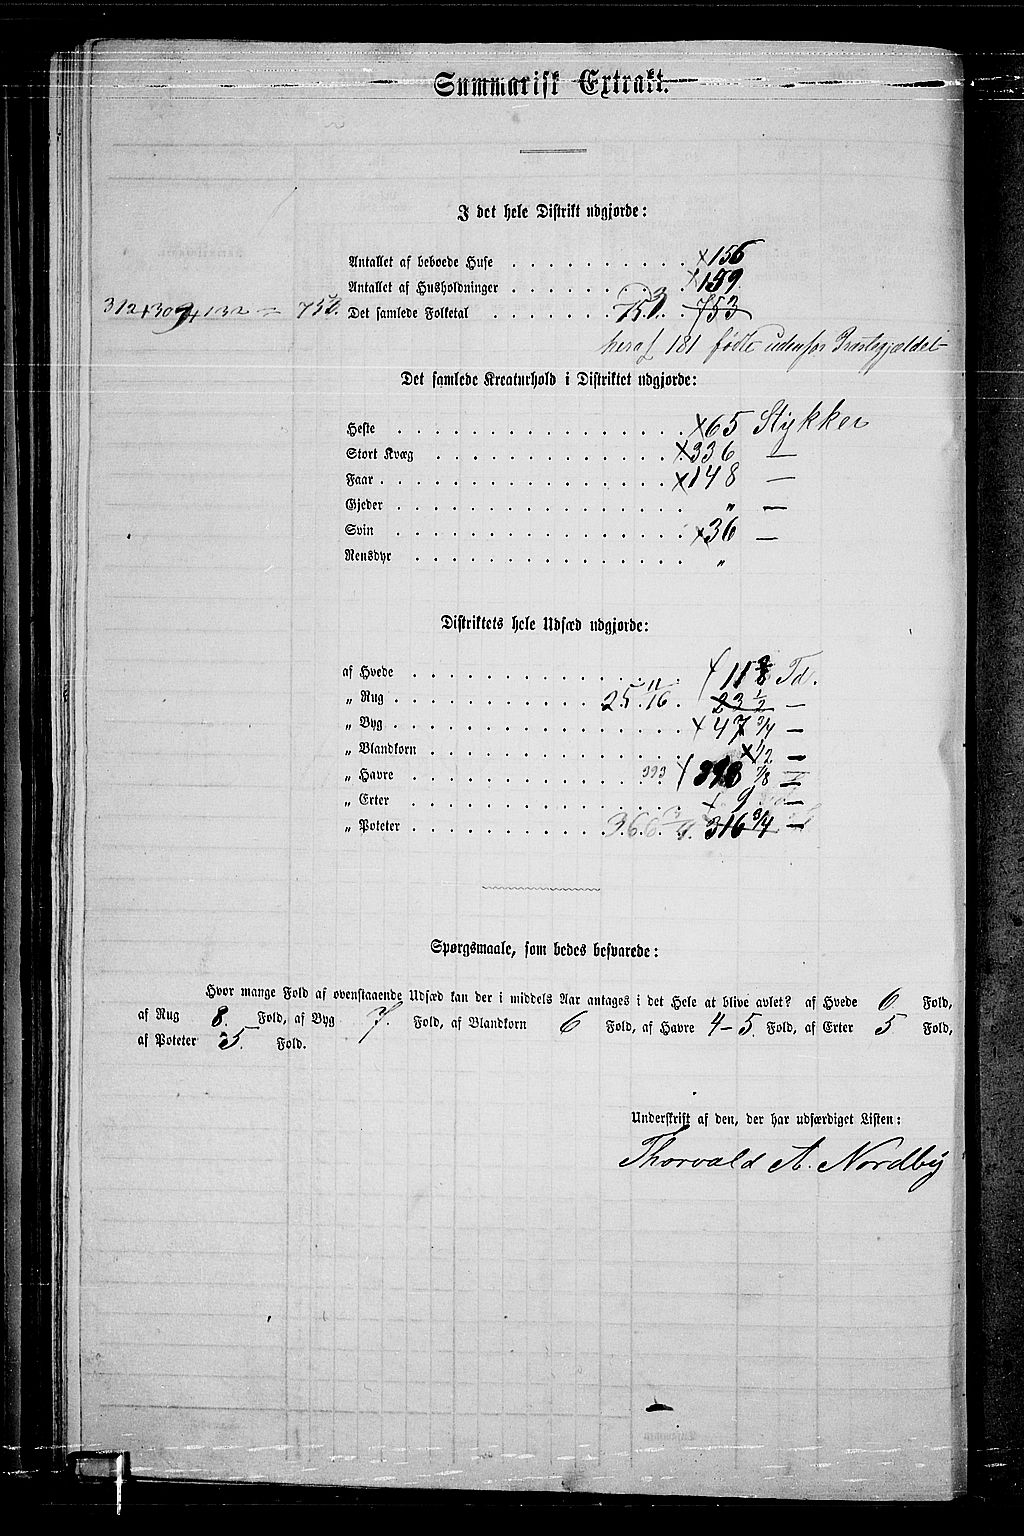 Summarisk Extrakt.
I det hele Distrikt udgjorde:
Antallet af beboede Huse × 156
Antallet af Husholdninger × 159
312 + 309 + 132 = 753. Det samlede Folketal 753
heraf 181 fødte udenfor Præstegjældet
Det samlede Kreaturhold i Distriktet udgjorde:
Heste × 65 Stykker
Stort Kvæg × 336 —
Faar × 148 —
Gjeder „ —
Svin × 36 —
Rensdyr „
Distriktets hele Udsæd udgjorde:
af Hvede × 11 Td.
„ Rug 25 11/16 23 1/2 —
„ Byg × 47 3/4 —
„ Blandkorn × 1/2 —
„ Havre 393 × 7/8 —
„ Erter × 9 —
„ Poteter 366 316 3/4 —
Spørgsmaale, som bedes besvarede:
Hvor mange Fold af ovenstaaende Udsæd kan der i middels Aar antages i det Hele at blive avlet? af Hvede 6 Fold,
af Rug 8. Fold, af Byg 7. Fold, af Blandkorn 6 Fold, af Havre 4–5. Fold, af Erter 5 Fold,
af Poteter 5. Fold.
Underskrift af den, der har udfærdiget Listen:
Thorvald A. Nordby